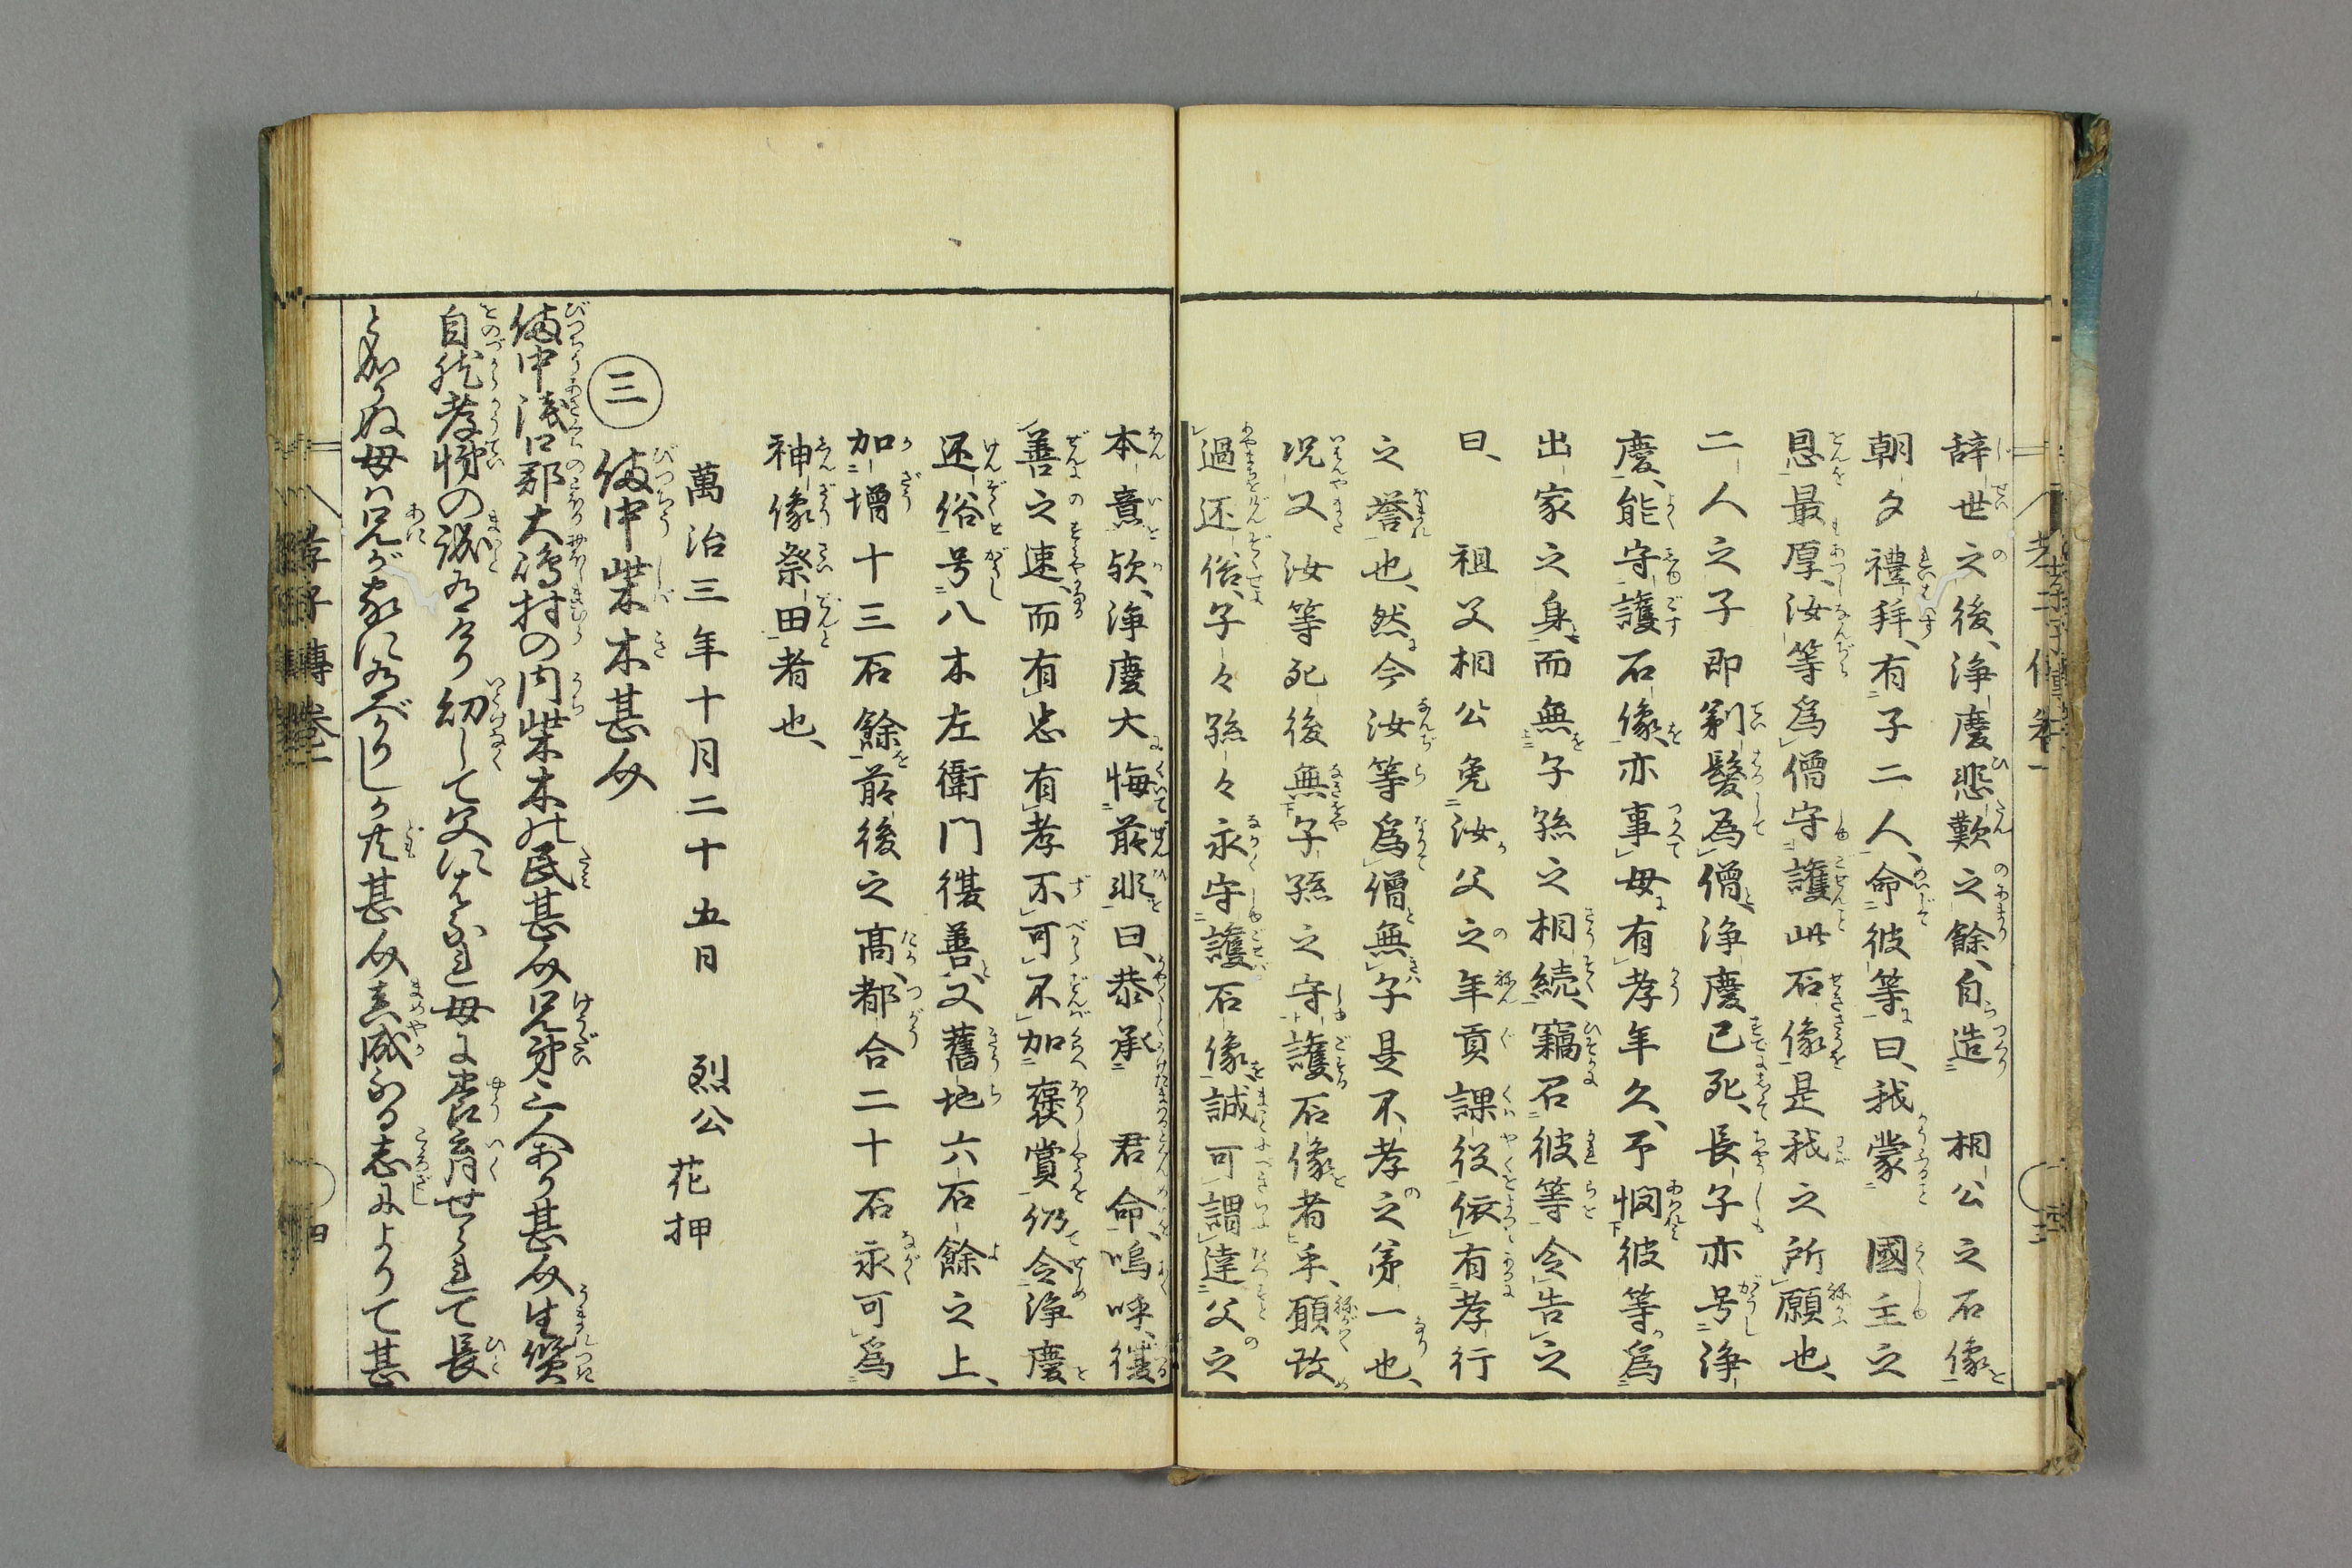 辞世之後、浄慶悲歎之餘、自造　相公之石像
朝夕禮拜、有子二人、命彼等曰、我蒙　國主之
恩最厚、汝等爲僧守護此石像是我之所願也、
二人之子即剃髪為僧、浄慶已死、長子亦号浄
慶、能守護石像、亦事母有孝年久、予憫彼等爲
出家之身、而無子孫之相続、竊召彼等令告之
曰、　祖父相公免汝父之年貢課役、依有孝行
之誉也、然今汝等爲僧無子是不孝之第一也、
况又汝等死後無子孫之守護石像者乎、願改
過還俗、子々孫々永守護石像、誠可謂達父之
本意歟、浄慶大悔前非曰、恭承　君命、嗚呼、遷
善之速、而有忠有孝不可不加褒賞、仍令浄慶
还俗号八木左衛門遷善、又舊地六石餘之上、
加増十三石餘、前後之高、都合二十石永可爲
神像祭田者也、
萬治三年十月二十五日　烈公　花押
三　備中柴木甚介
備中浅口郡大嶋村の内柴木の民甚介兄弟三人あり甚介生質
自然孝悌の誠有けり幼して父にはなれ母に養育せられて長
となりぬ母は兄が家に有べかりしか共甚介真成なる志によりて甚
孝子傳巻一
四